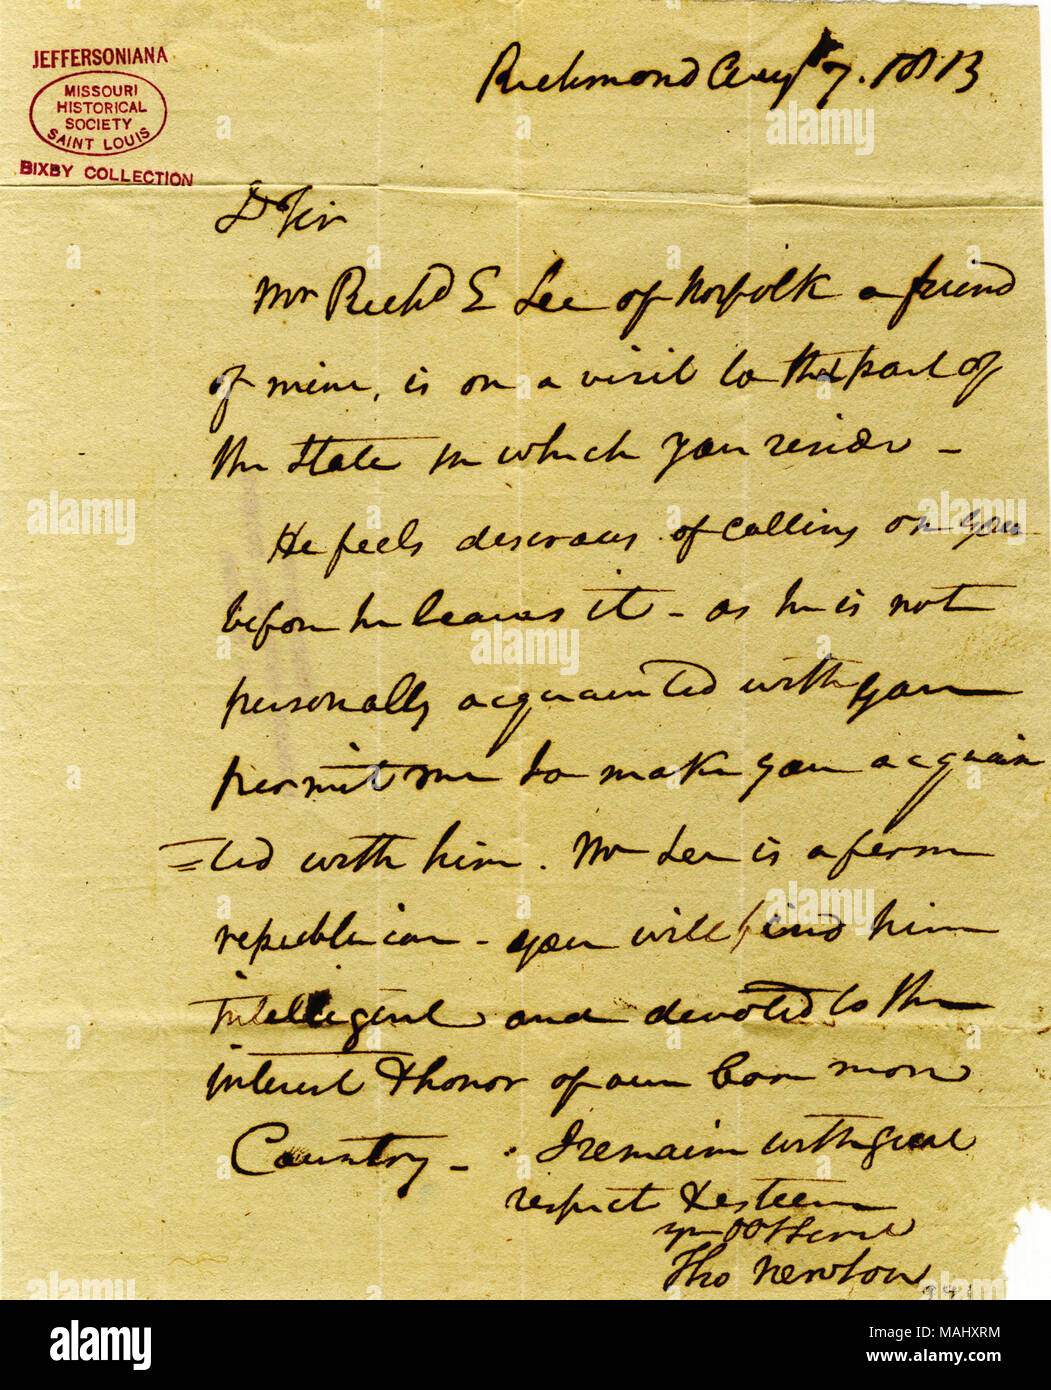 JEFFERSONIANA
MISSOURI
HISTORICAL
SOCIETY
SAINT LOUIS
BIXBY COLLECTION
Richmond Augt 7. 1813
Dr Sir
Mr Richd E Lee of Norfolk a friend
of mine, is on a visit to that part of
the State in which you reside -
He feels desirous of calling on you
before he leaves it - as he is not
personally acquainted with you
permit me to make you acquain
=ted with him. Mr Lee is a ferm
republican - you will find him
intelligent and devoted to the
interest & honor of our Common
Country - I remain with great
respect & esteem
yr Ob Servt
Tho Newton
alamy stock photo
alamy
MAHXRM
www.alamy.com